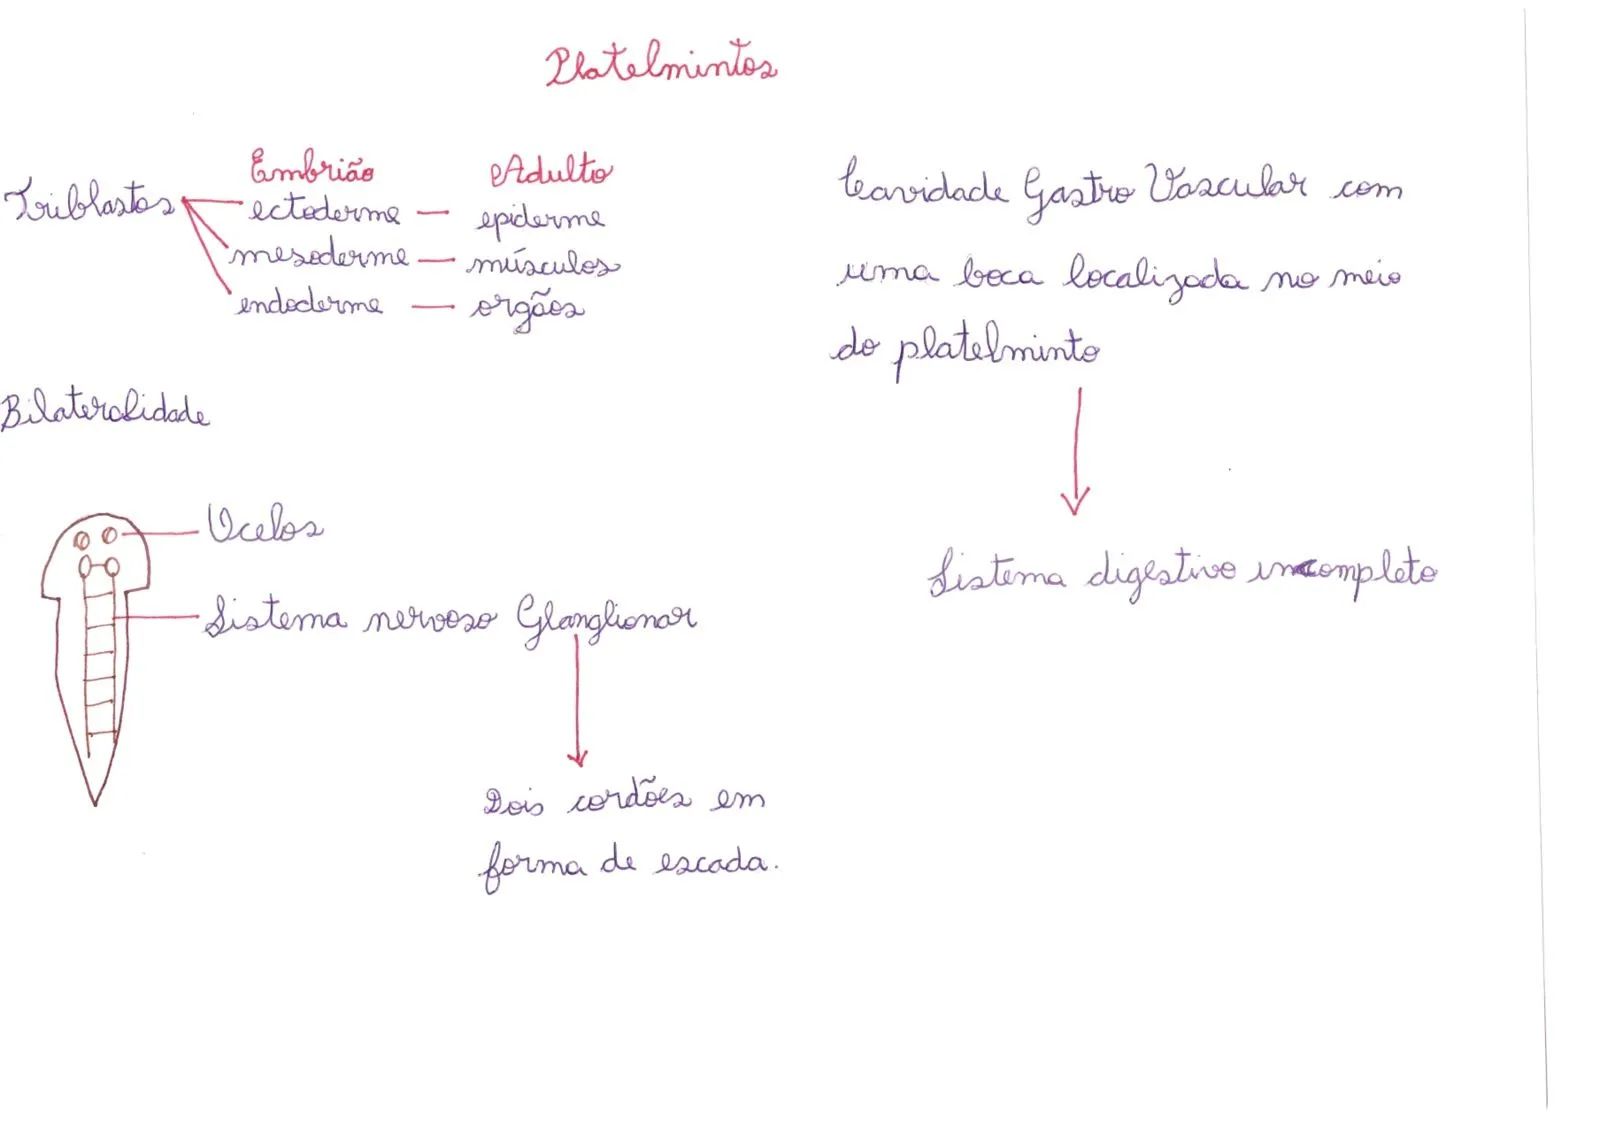 Platelmintos
Embrião Adulto
Triblastos ectoderme — epiderme
mesoderme — músculos
endoderme — orgãos
Bilateralidade
Ocelos
Sistema nervoso Glanglionar
Dois cordões em
forma de escada.
Cavidade Gastro Vascular com
uma boca localizada no meio
do platelminto
Sistema digestivo incompleto